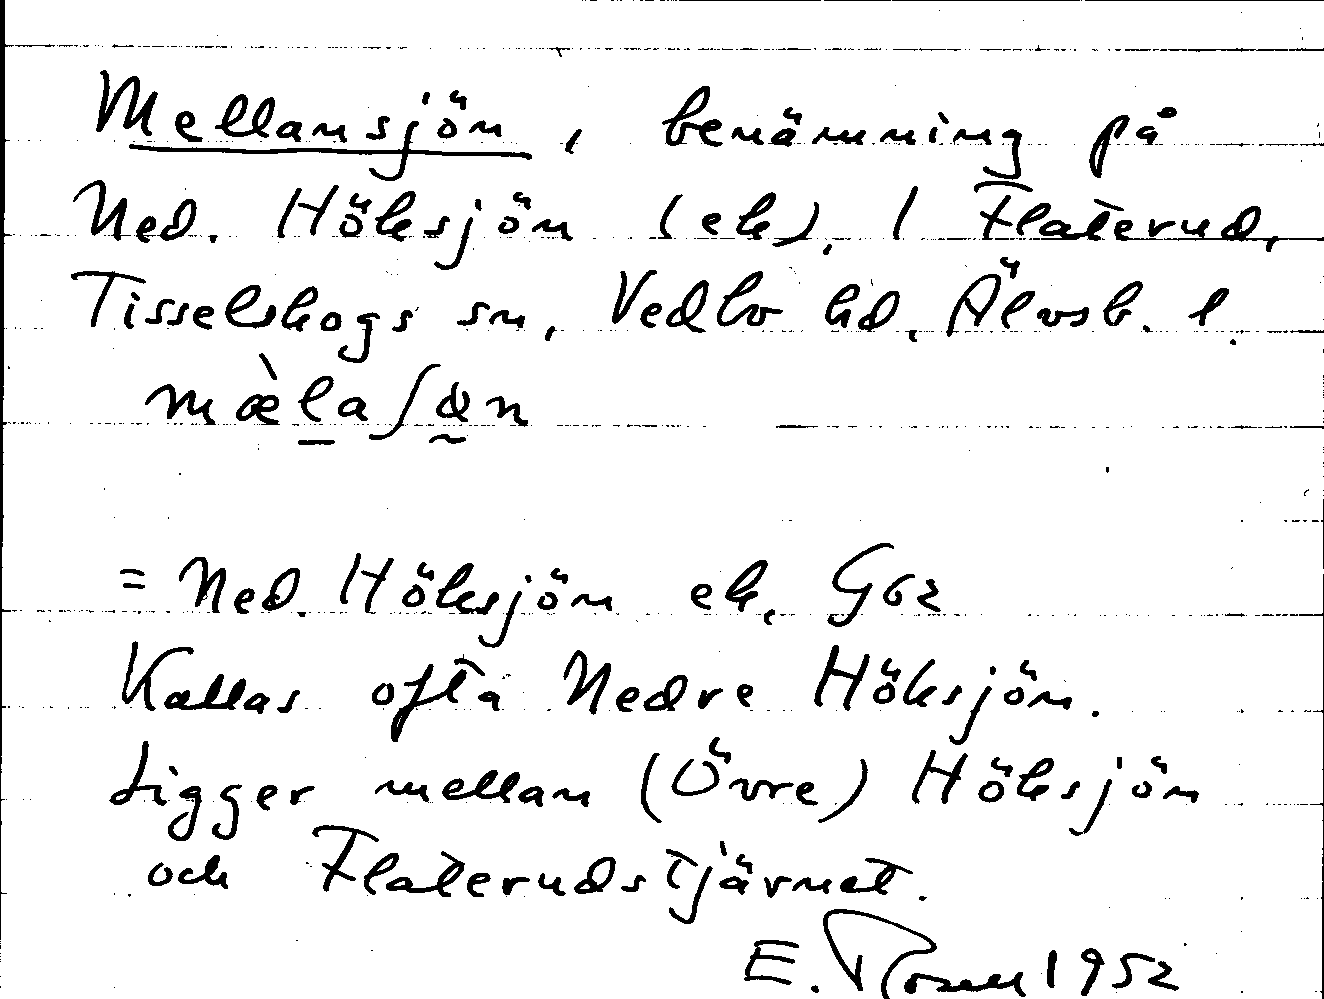 Mellansjön, benämning på
Ned. Höksjön (ek), / Flaterud,
Tisselskogs sn, Vedbo hd, Älvsb. l.
mæ̀la∫ɷn
= Ned. Höksjön ek, G62
Kallas ofta Nedre Höksjön.
Ligger mellan (Övre) Höksjön
och Flaterudstjärnet.
E. Rosell 1952